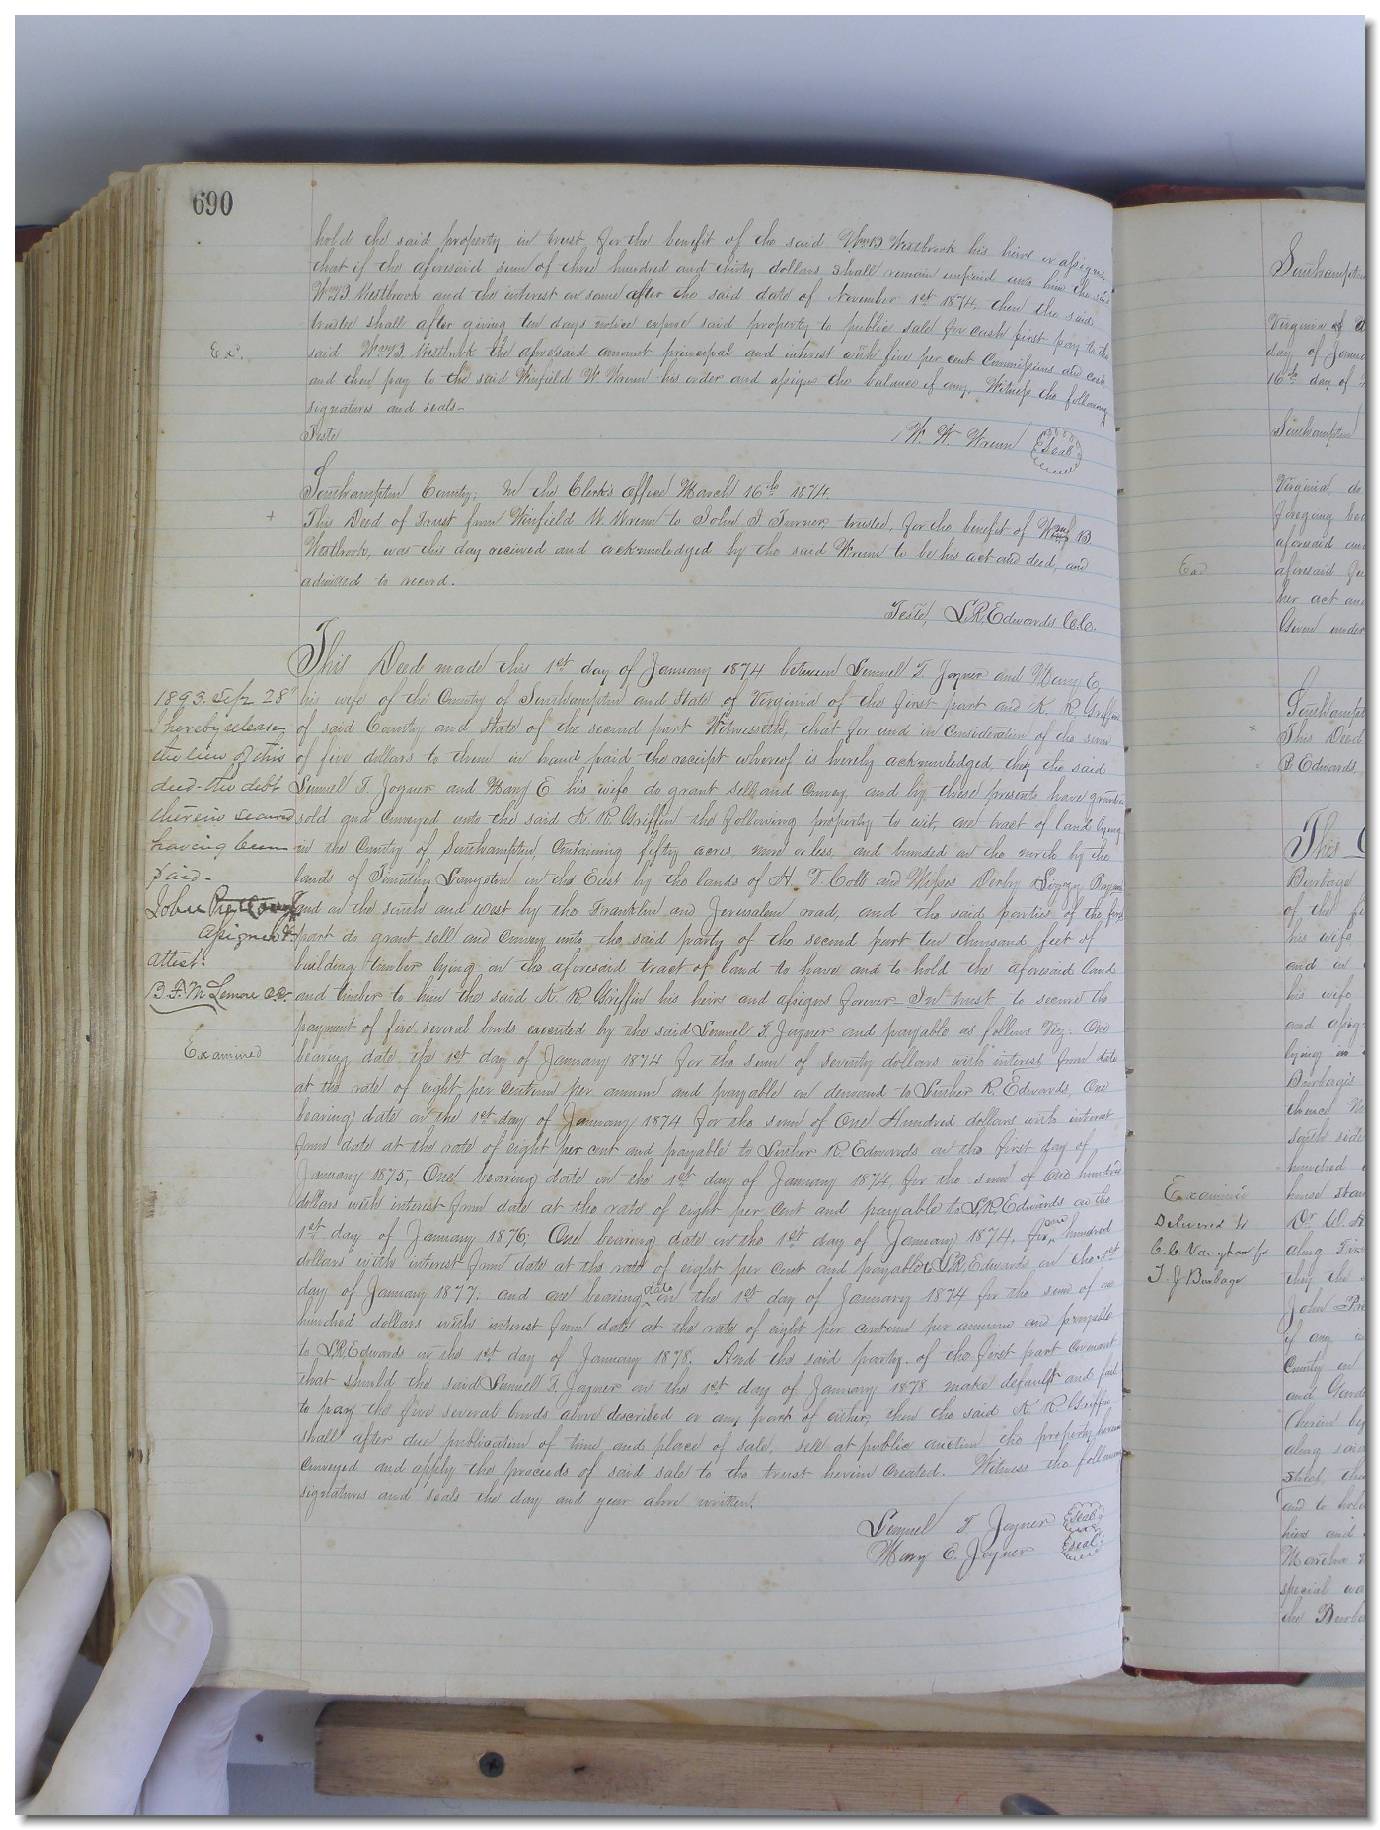 690
hold the said property in trust for the benefit of the said Wm B Westbrook his heirs or assigns
that if the aforesaid sum of three hundred and thirty dollars shall remain unpaid unto him the said
Wm B. Westbrook and the interest on same after the said date of November 1st 1874, then the said
trustee shall after giving ten days notice expose said property to public sale for cash first pay to the
Ex.
said Wm B. Westbrook the aforesaid amount principal and interest with five per cent Commissions and cost
and then pay to the said Winfield W Wrenn his order and assigns the balance if any. Witness the following
signatures and seals-
Teste
W. W. Wrenn Seal
Southampton County; In the Clerk's office March 16th 1874.
This Deed of Trust from Winfield W. Wrenn to John J. Turner trustee, for the benefit of Wm B
Westbrook, was this day received and acknowledged by the said Wrenn to be his act and deed, and
admitted to record.
Teste, L.R. Edwards C.C.
This Deed made this 1st day of January 1874 between Lemuel T. Joyner and Mary E
his wife of the County of Southampton and State of Virginia of the first part and K. R. Griffin
of said County and State of the second part Witnesseth, that for and in Consideration of the sum
of five dollars to them in hand paid the receipt whereof is hereby acknowledged, they the said
Lemuel T. Joyner and Mary E his wife do grant sell and Convey and by these presents have granted
sold and Conveyed unto the said K. R. Griffin the following property to wit, one tract of land lying
in the County of Southampton, Containing fifty acres more or less, and bounded on the north by the
lands of Timothy Langston on the East by the lands of H. T. Cobb and Misses Derby & Lizzy
and on the south and west by the Franklin and Jerusalem road, and the said parties of the first
part do grant sell and Convey unto the said party of the second part ten thousand feet of
building timber lying on the aforesaid tract of land to have and to hold the aforesaid land
and timber to him the said K. R Griffin his heirs and assigns forever In trust to secure the
payment of five several bonds executed by the said Lemuel T. Joyner and payable as follows Viz: One
bearing date the 1st day of January 1874 for the sum of seventy dollars with interest from date
at the rate of eight per Centum per annum and payable on demand to Luther R. Edwards, One
bearing date on the 1st day of January 1874 for the sum of One Hundred dollars with interest
from date at the rate of eight per cent and payable to Luther R Edwards on the first day of
January 1875, One bearing date on the 1st day of January 1874, for the sum of one hundred
dollars with interest from date at the rate of eight per Cent and payable to L.R. Edwards on the
1st day of January 1876; One bearing date on the 1st day of January 1874, for one hundred
dollars with interest from date at the rate of eight per cent and payable to L.R. Edwards on the 1st
day of January 1877; and one bearing date on the 1st day of January 1874 for the sum of one
hundred dollars with interest from date at the rate of eight per centum per annum and payable
to L.R. Edwards on the 1st day of January 1878. And the said party of the first part Covenant
that should the said Lemuel T. Joyner on the 1st day of January 1878 make default and fail
to pay the five several bonds above described or any part of either, then the said K R Griffin
shall after due publication of time and place of sale, sell at public auction the property herein
Conveyed and apply the proceeds of said sale to the trust herein Created. Witness the following
signatures and seals the day and year above written.
Lemuel T. Joyner Seal
Mary E. Joyner Seal
1893. Sep 28
I hereby release
the lien of this
deed-the debt
therein secured
having been
paid-
John
assignee
attest:
B. F. McLemore CC.
Examined
Southampton
Virginia
day of
16th day of
Southampton
Virginia, do
foregoing
aforesaid
Exd
aforesaid
her act and
Given under
Southampton
This Deed
B. Edwards,
This
Burbage
of the
his wife
and
his wife
and assig
lying in
Burbage's
thence
south side
hundred
Examined
house
Delivered to
Dr W.
C. C. Vaughan for
along
T. J Burbage
they the
John
if any
County on
and
(herein
along said
street
and to hold
heirs and
Martha
special
the Burb